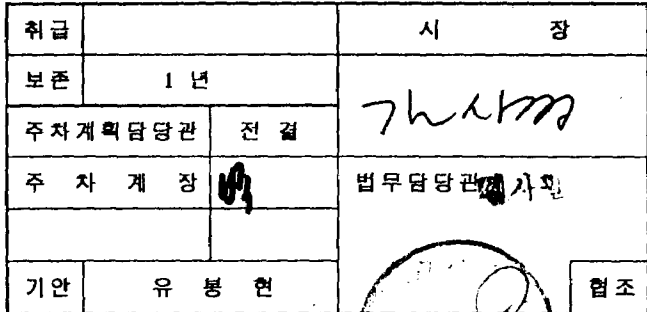 취급 시 장
보존 1 년
주차계획담당관 전 결
주 차 계 장 법무담당관
기안 유 봉 현 협조